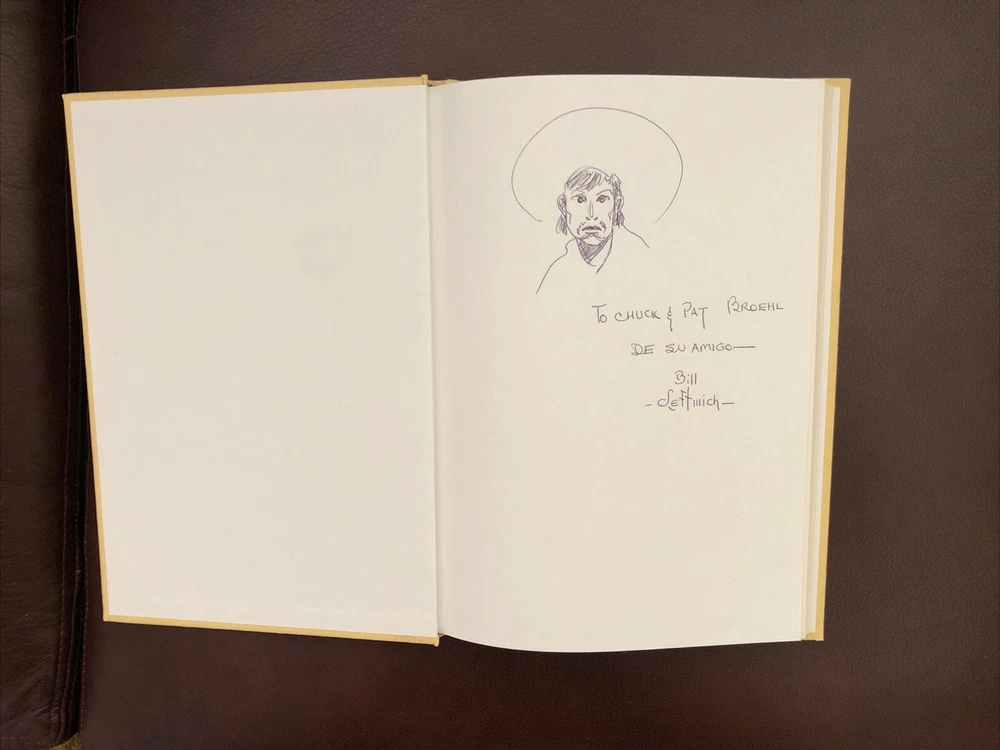 To CHUCK & PAT BROEHL
DE SU AMIGO—
Bill
- Leftwich -